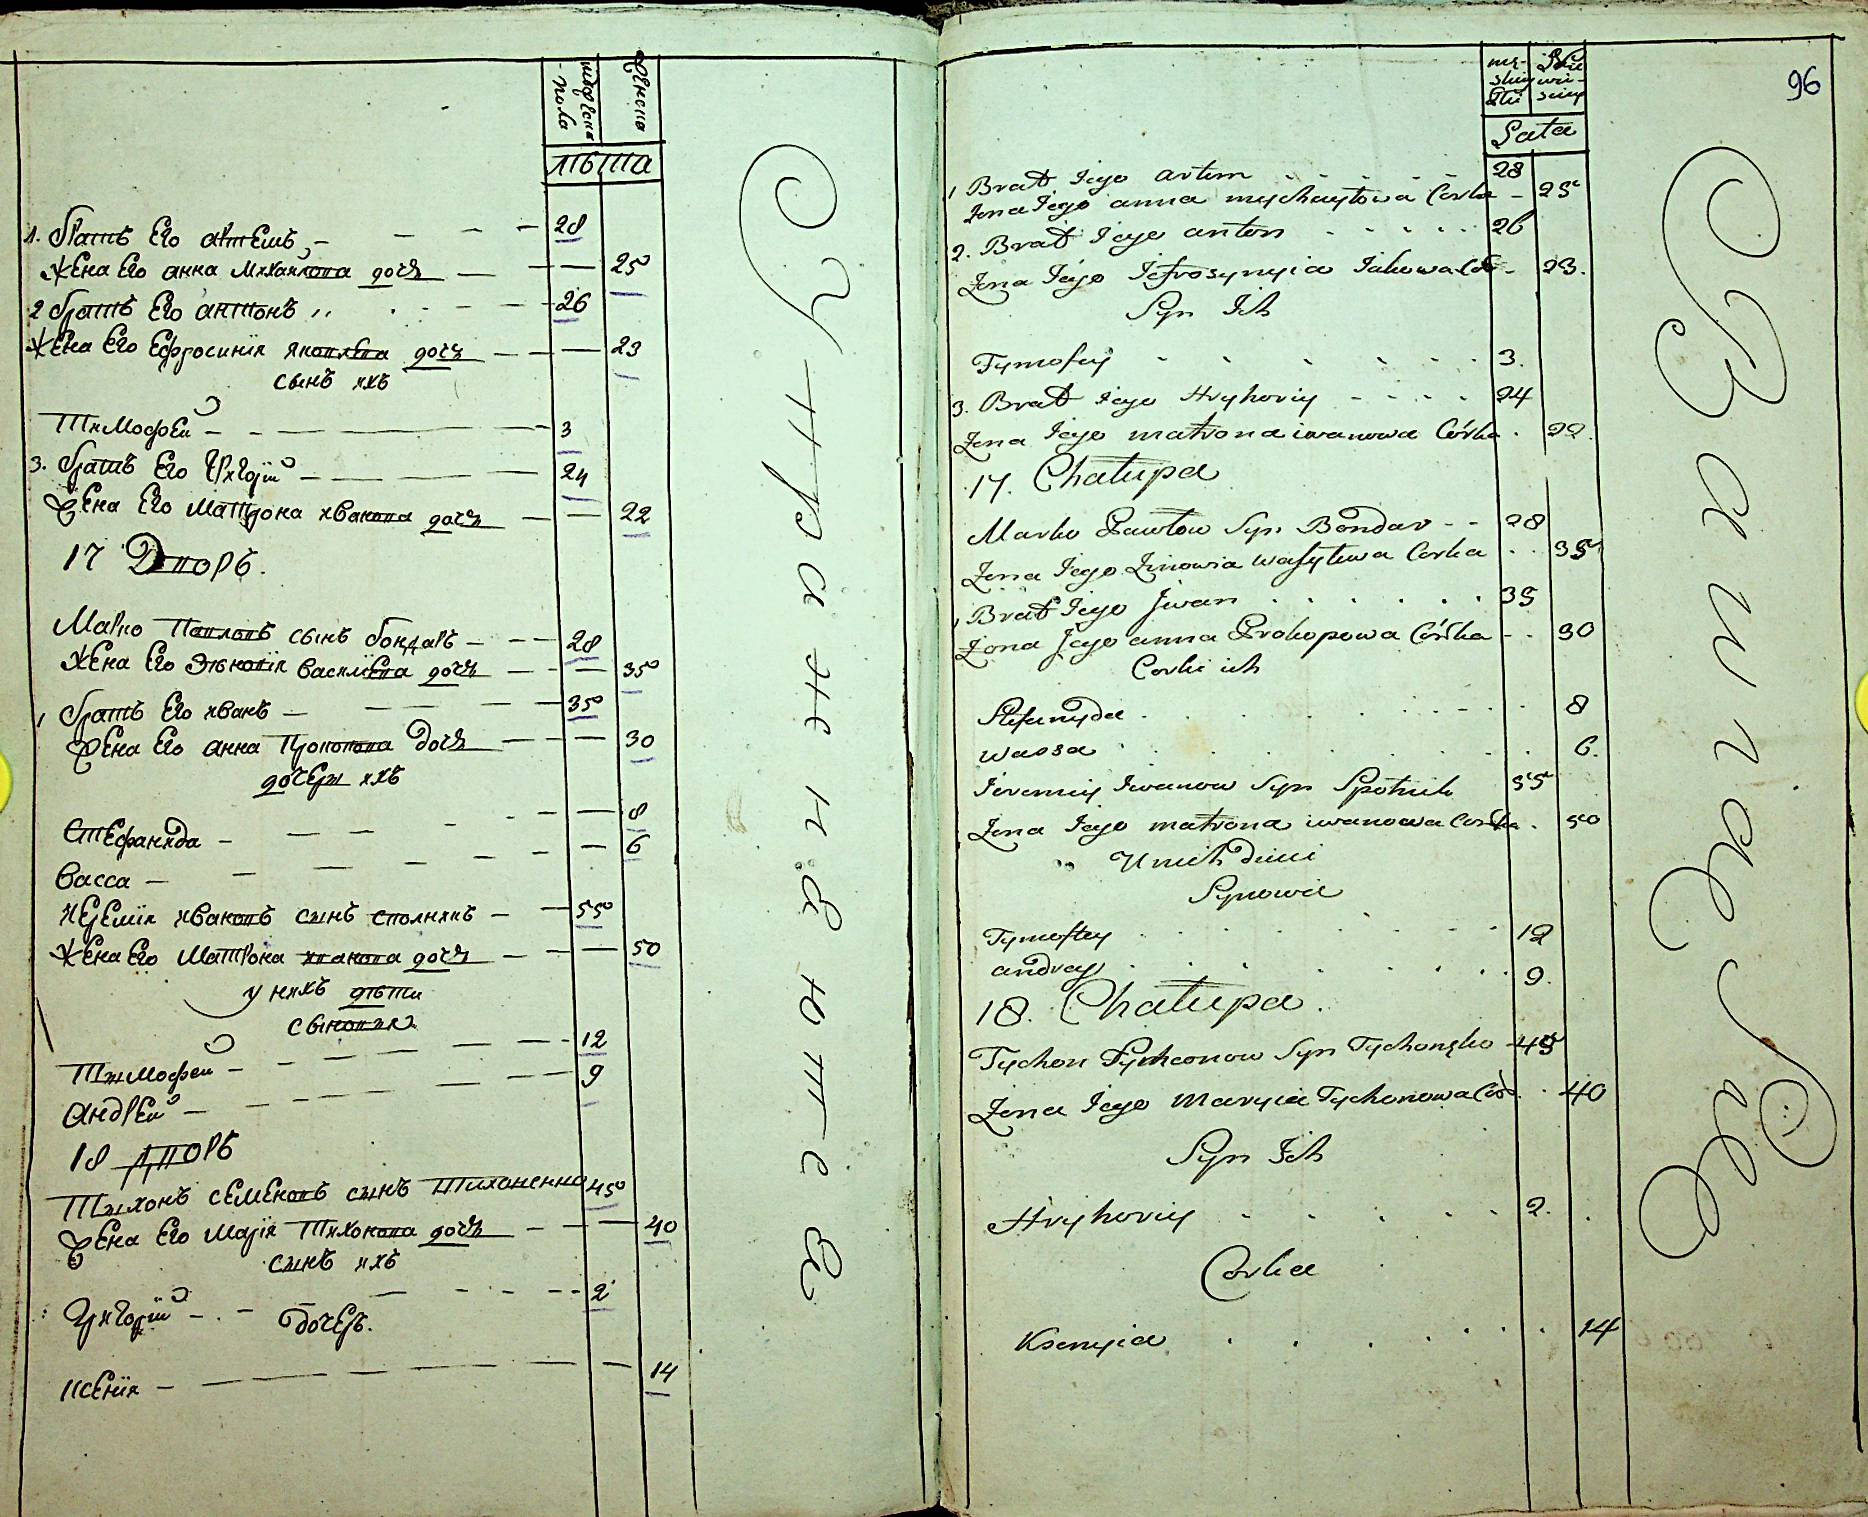 мужеска пола
женска
лѣта
1. братъ Его артемъ — 28
Жена Его анна Михаилова дочь — 25
2 братъ Его антонъ — 26
Жена Его Ефросинія яковлева дочь — 23
сынъ ихъ
Тимофей — 3
3. братъ Его григорій — 24
Жена Его матрона иванова дочь — 22
17 Дворъ.
Марко Павловъ сынъ бондарь — 28
Жена Его Зѣновія василіева дочь — 35
1 братъ Его иванъ — 35
Жена Его анна Прокопова дочь — 30
дочери ихъ
Стефанида — 8
Васса — 6
иеремія ивановъ сынъ — 55
Жена Его матрона иванова дочь — 50
у нихъ дѣти
сыновья
Тимофей — 12
андрей — 9
18 дворъ
Тихонъ семеновъ сынъ тихоненко 45
Жена Его марія Тихонова дочь — 40
сынъ ихъ
григорій — 2
дочерь.
ксенія — 14
96
męskiey
Płci
Lata
1 Brat Jego artem 28
Zona Jego anna mychayłowa Corka - 25
2. Brat Jego anton 26
Zona Jego Jefrosynyia Jakowa Co - 23.
Syn Ich
Tymofey 3.
3. Brat Jego Hryhoriy 24
Zona Jego matrona iwanowa Córka . 22.
17. Chałupa
Marko Pawłow Syn Bondar - - 28
Zona Jego Zinowia wasylewa Corka . . 35
1 Brat Jego Jwan 35
Zona Jego anna Prokopowa Córka - . 30
Corki ich
Stefanyda 8
wassa 6.
Jeremiy Iwanow Syn Społnik 55
Zona Jego matrona iwanowa Corka . 50
U nich dzieci
Synowie
Tymoftey 12
andrey 9.
18. Chałupa.
Tychon Symeonow Syn Tychonęko 45
Zona Jego Maryia Tychonowa Cór. . 40
Syn Ich
Hryhoriy 2.
Corka
Ksenyia 14